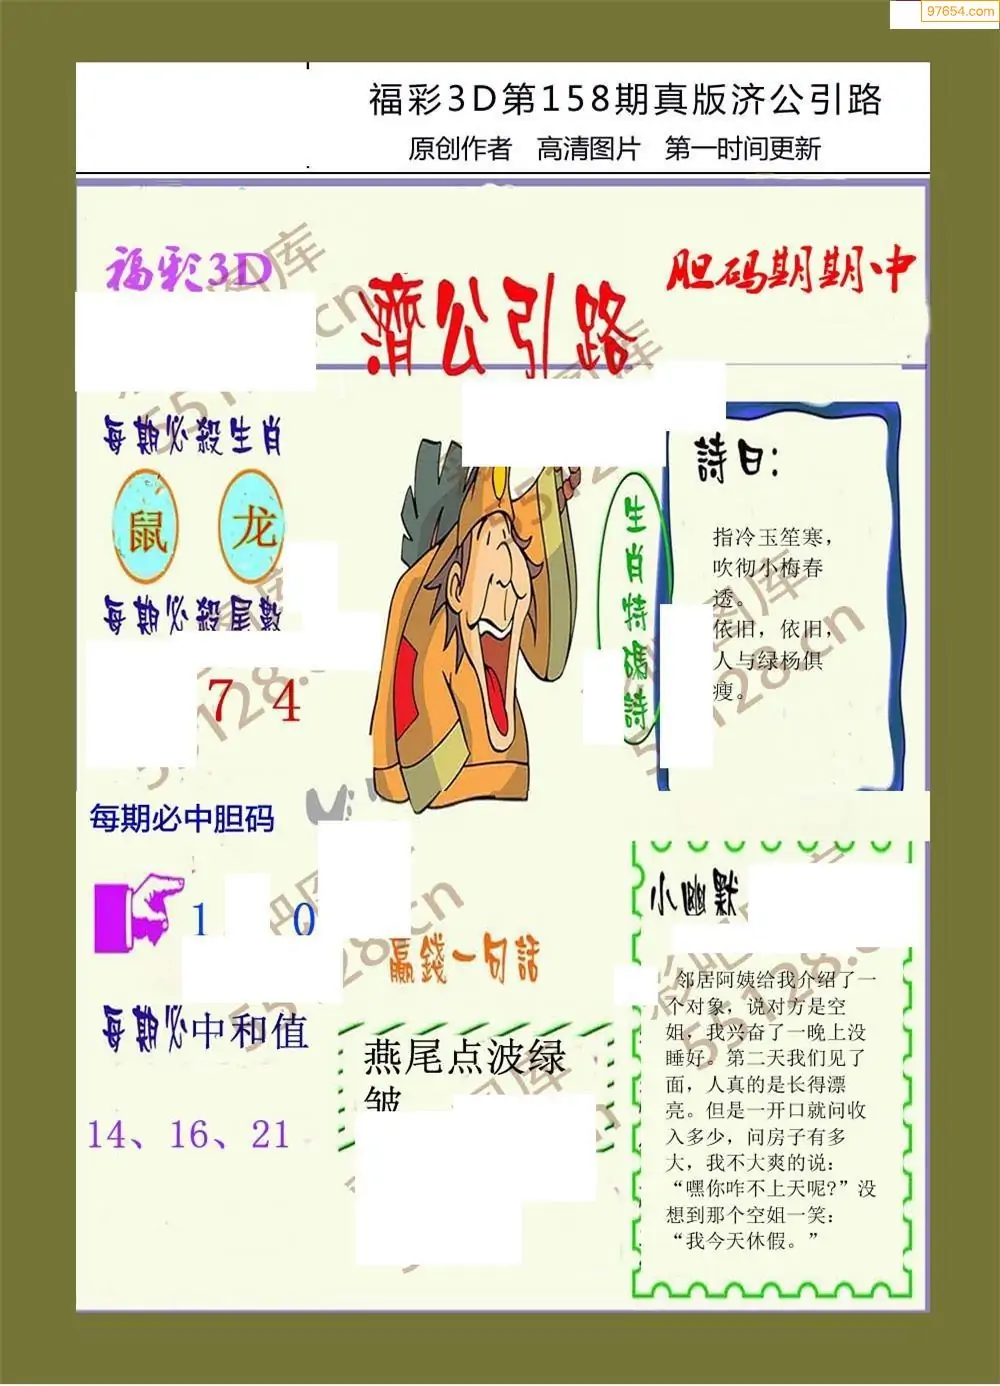 97654.com
福彩3D第158期真版济公引路
原创作者 高清图片 第一时间更新
福彩3D
胆码期期中
濟公引路
每期必殺生肖
鼠 龙
每期必殺尾數
7 4
生肖特碼詩
詩曰:
指冷玉笙寒,
吹彻小梅春
透。
依旧,依旧,
人与绿杨俱
瘦。
每期必中胆码
1 0
每期必中和值
14、16、21
贏錢一句話
燕尾点波绿
皱
小幽默
邻居阿姨给我介绍了一
个对象,说对方是空
姐,我兴奋了一晚上没
睡好。第二天我们见了
面,人真的是长得漂
亮。但是一开口就问收
入多少,问房子有多
大,我不大爽的说:
“嘿你咋不上天呢?”没
想到那个空姐一笑:
“我今天休假。”
55128.cn